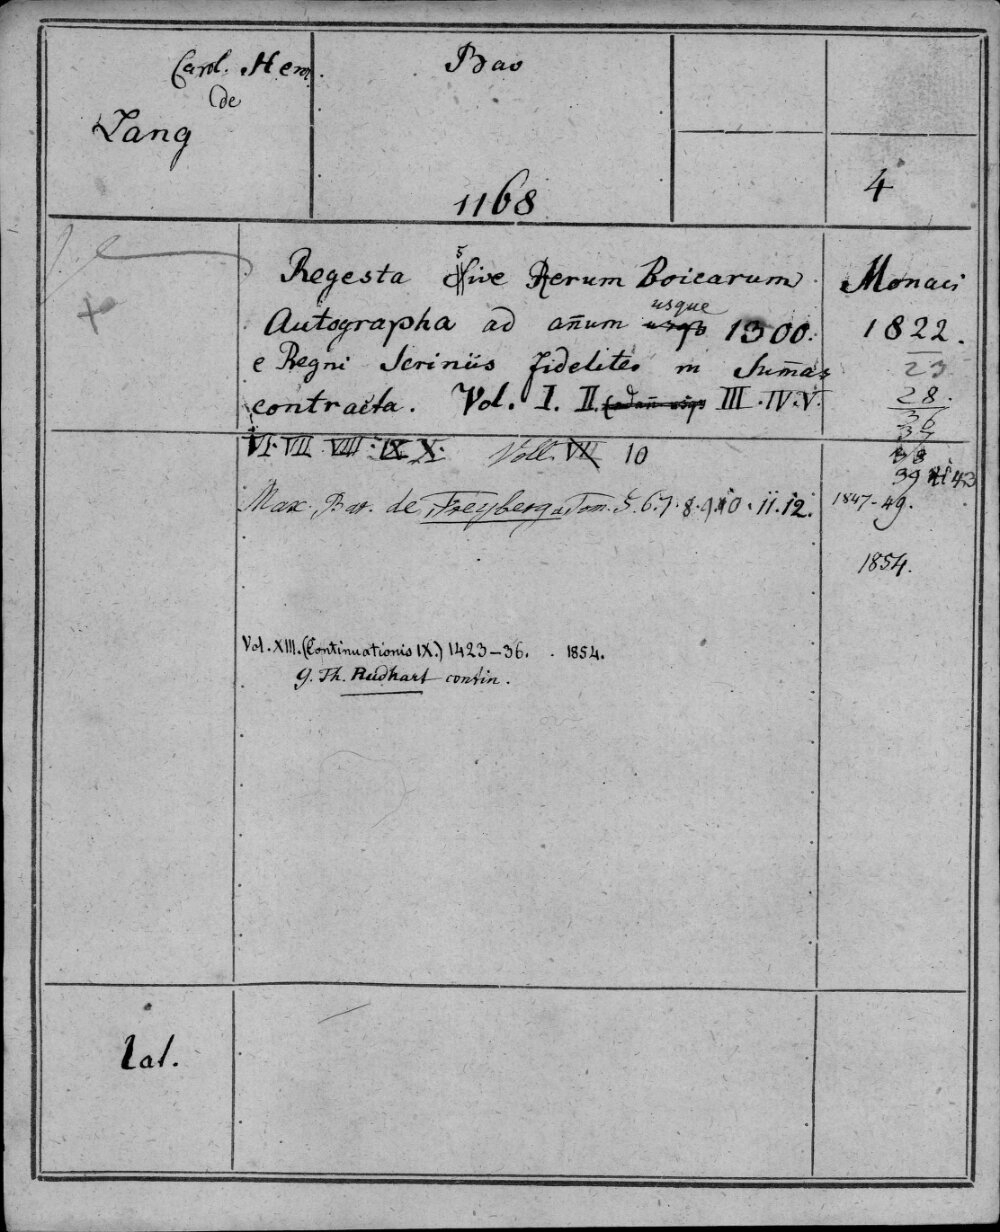 Carol. Henr.
de
Lang
Bav
1168
4
Regesta sive Rerum Boicarum
Autographa ad añum usque 1300.
e Regni Scriniis fideliter in Sum̃as
contracta. Vol. I. II. III. IV. V.
VI. VII. VIII. IX. X. Voll. VII 10
Max. Bar. de Freyberg Tom. 5. 6. 7. 8. 9. 10. 11. 12.
Monaci
1822.
23
28.
36
37
38
39 43
1847-49.
1854.
Vol. XIII. (Continuationis IX.) 1423-36. . 1854.
G. Th. Rudhart contin.
Lat.